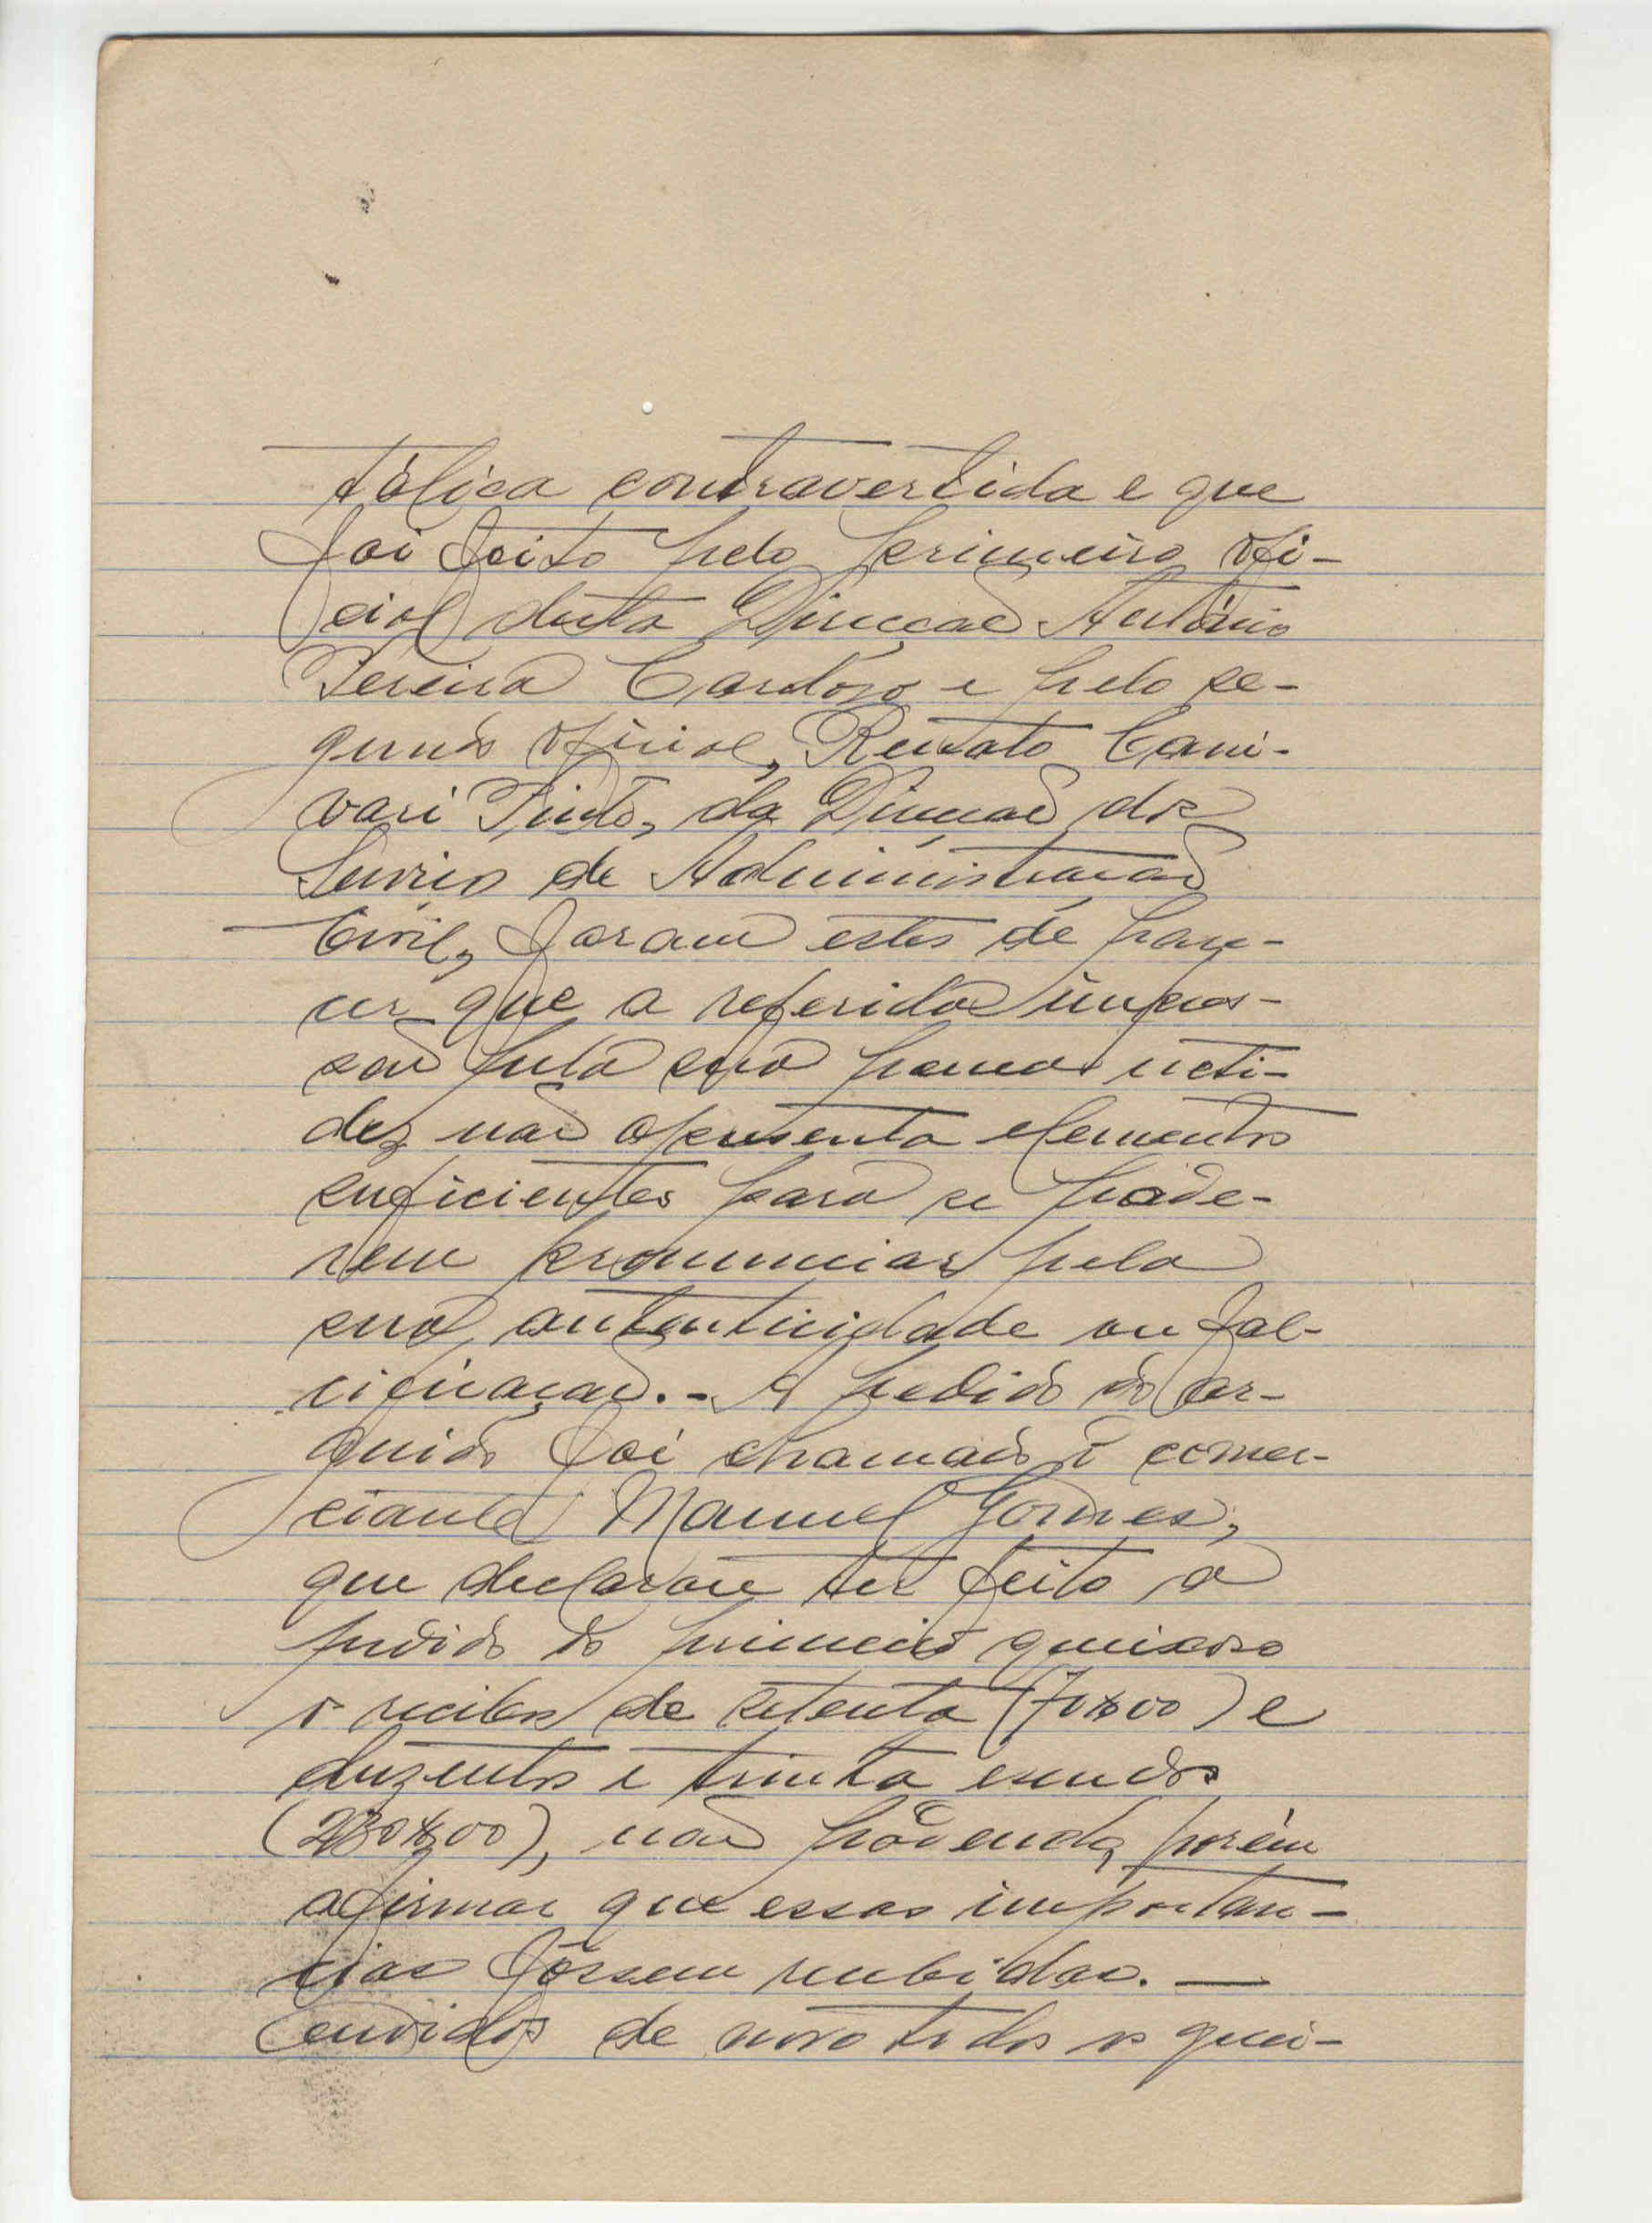 tálica contravertida e que
foi feito pelo primeiro ofi-
cial desta Direcção António
Pereira Cardoso e pelo se-
gundo oficial, Renato Cani-
vari Pinto, da Direcção dos
Serviços de Administração
Civil, foram estes de pare-
cer que a referida impres-
são pela sua pouca niti-
dez não apresenta elementos
suficientes para se pode-
rem pronunciar pela
sua autenticidade ou fal-
cificação. - A pedido do ar-
guido foi chamado o comer-
ciante Manuel Gomes,
que declarou ter feito a
pedido do primeiro queixoso
o recibos de setenta (70$00) e
duzentos e trinta escudos
(230$00), não podendo, porém
afirmar que essas importan-
cias fôssem recebidas. —
Ouvidos de novo todos os quei-